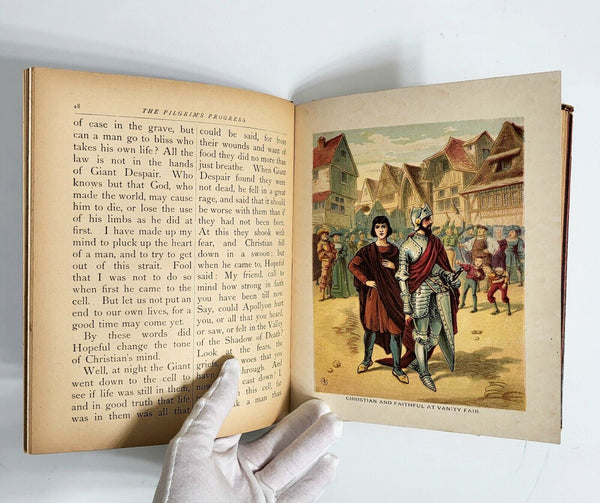 48
THE PILGRIM'S PROGRESS
of case in the grave, but
can a man go to bliss who
takes his own life? All the
law is not in the hands
of Giant Despair. Who
knows but that God, who
made the world, may cause
him to die, or lose the use
of his limbs as he did at
first. I have made up my
mind to pluck up the heart
of a man, and to try to get
out of this strait. Fool
that I was not to do so
when first he came to the
cell. But let us not put an
end to our own lives, for a
good time may come yet.
By these words did
Hopeful change the tone
of Christian's mind.
Well, at night the Giant
went down to the cell to
see if life was still in them,
and in good truth that life
was in them was all that
could be said, for from
their wounds and want of
food they did no more than
just breathe. When Giant
Despair found they were
not dead, he fell in a great
rage, and said that it should
be worse with them than if
they had not been born.
At this they shook with
fear, and Christian fell
down in a swoon; but
when he came to, Hopeful
said: My friend, call to
mind how strong in faith
you have been till now.
Say, could Apollyon hurt
you, or all that you heard,
or saw, or felt in the Valley
of the Shadow of Death?
Look at the fears, the
griefs, woes that you
have through. And
now cast down! I,
in this cell, far
a man than
CHRISTIAN AND FAITHFUL AT VANITY FAIR.